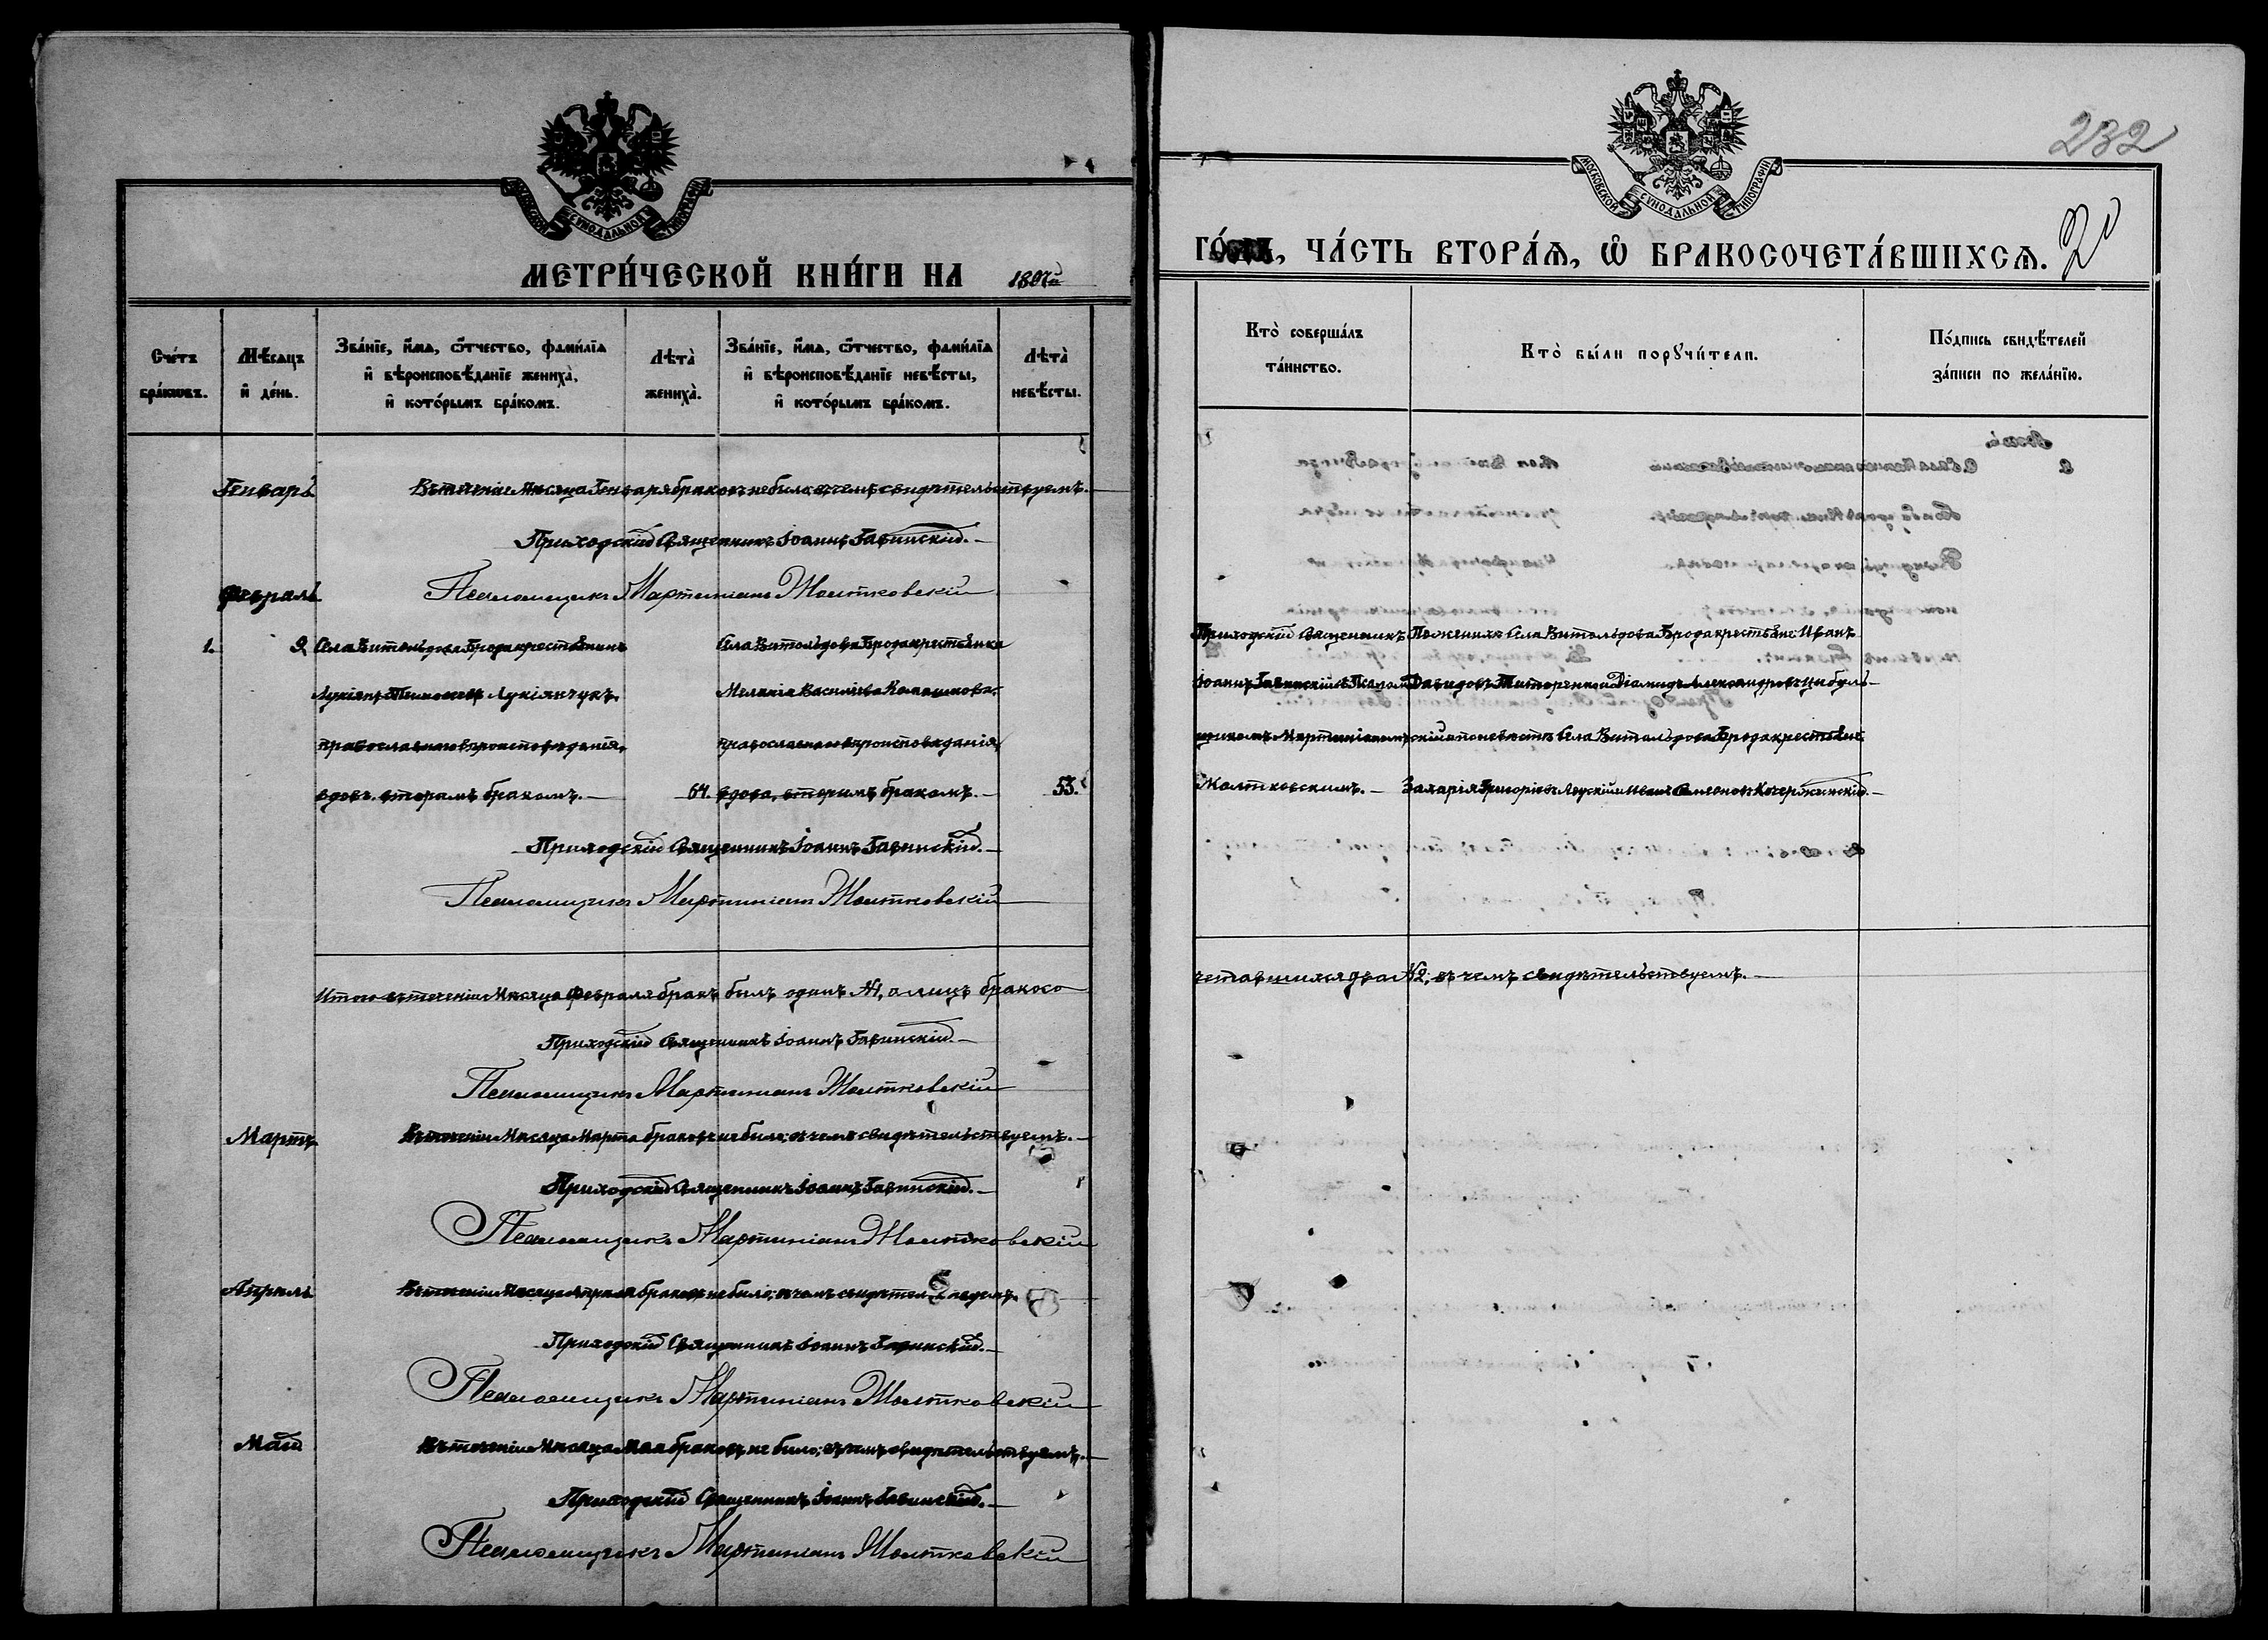 232
МОСКОВСКОЙ СѴНОДАЛЬНОЙ ТИПОГРАФІИ
МЕТРИ́ЧЕСКОЙ КНИ́ГИ НА 1897й
ГО́ДЪ, ЧА́СТЬ ВТОРА́Ѧ, Ѽ БРАКОСОЧЕТА́ВШИХСѦ.
20
Сче́тъ бра́ковъ.
Мѣ́сѧцъ и҆ де́нь.
Зва́нїе, и҆́мѧ, ѻ҆́тчество, фами́лїѧ и҆ вѣроисповѣ́данїе жениха̀, и҆ кото́рымъ бра́комъ.
Лѣта̀ жениха̀.
Зва́нїе, и҆́мѧ, ѻ҆́тчество, фами́лїѧ и҆ вѣроисповѣ́данїе невѣ́сты, и҆ кото́рымъ бра́комъ.
Лѣта̀ невѣ́сты.
Кто̀ соверша́лъ та́инство.
Кто̀ бы́ли порꙋчи́тели.
По́дпись свидѣ́телей за́писи по жела́нїю.
Генварь
Въ теченіе Мѣсяца Генваря браковъ не было, въ чемъ свидѣтельствуемъ.
Приходскій Священникъ Іоаннъ Гавинскій.
Псаломщикъ Мартиніанъ Жолтковскій
Февраль
1. 9. Села Витольдова Брода крестьянинъ
Лукіянъ Лукіянчукъ,
православнаго вѣроисповѣданія,
вдовъ. вторымъ бракомъ.
64.
Села Витольдова Брода крестьянка
Меланія Василіева
православнаго вѣроисповѣданія,
вдова, вторымъ бракомъ.
53.
Приходскій Священникъ
Іоаннъ Гавинскій съ Псалом
щикомъ Мартиніаномъ
Жолтковскимъ.
По женихѣ Села Витольдова Брода крестьяне: Иванъ
Давидовъ Титоренко и Діомидъ Александровъ Цибуль-
скій а по невѣстѣ Села Витольдова Брода крестьяне
Захарія Григоріевъ и Иванъ Симеоновъ Кочержинскій.
Приходскій Священникъ Іоаннъ Гавинскій.
Псаломщикъ Мартиніанъ Жолтковскій
Итого въ теченіи Мѣсяца Февраля бракъ былъ одинъ №1, а лицъ бракосо
четавшихся два №2; въ чемъ свидѣтельствуемъ.
Приходскій Священникъ Іоаннъ Гавинскій.
Псаломщикъ Мартиніанъ Жолтковскій
Мартъ
Въ теченіи Мѣсяца Марта браковъ не было; въ чемъ свидѣтельствуемъ.
Приходскій Священникъ Іоаннъ Гавинскій.
Псаломщикъ Мартиніанъ Жолтковскій
Апрель
Въ теченіи Мѣсяца Апреля браковъ не было; въ чемъ свидѣтельствуемъ.
Приходскій Священникъ Іоаннъ Гавинскій.
Псаломщикъ Мартиніанъ Жолтковскій
Май
Въ теченіи Мѣсяца Мая браковъ не было; въ чемъ свидѣтельствуемъ.
Приходскій Священникъ Іоаннъ Гавинскій.
Псаломщикъ Мартиніанъ Жолтковскій